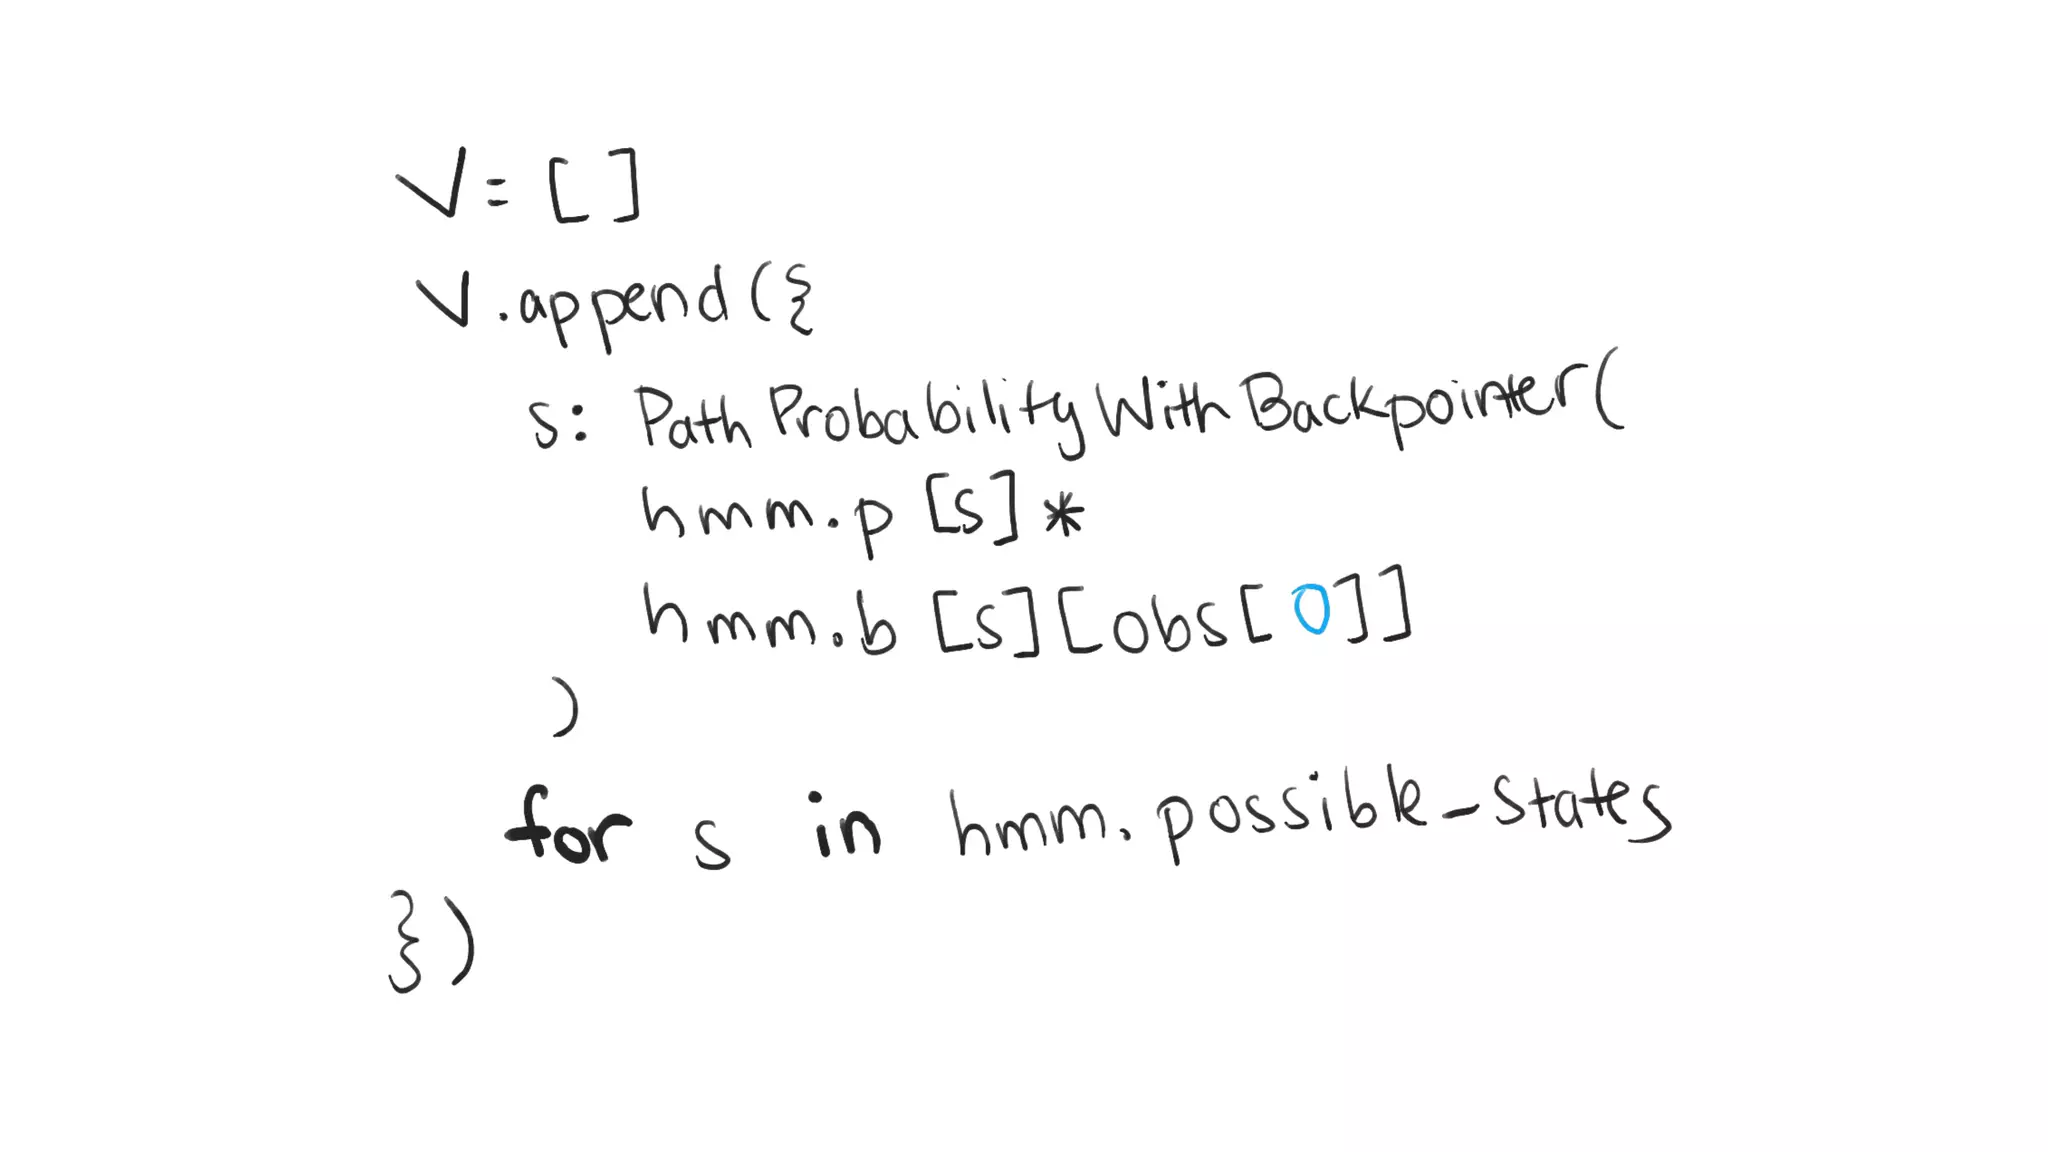 V=[]
V.append({
s: PathProbabilityWithBackpointer(
hmm.p[s]*
hmm.b[s][obs[0]]
)
for s in hmm.possible_states
})